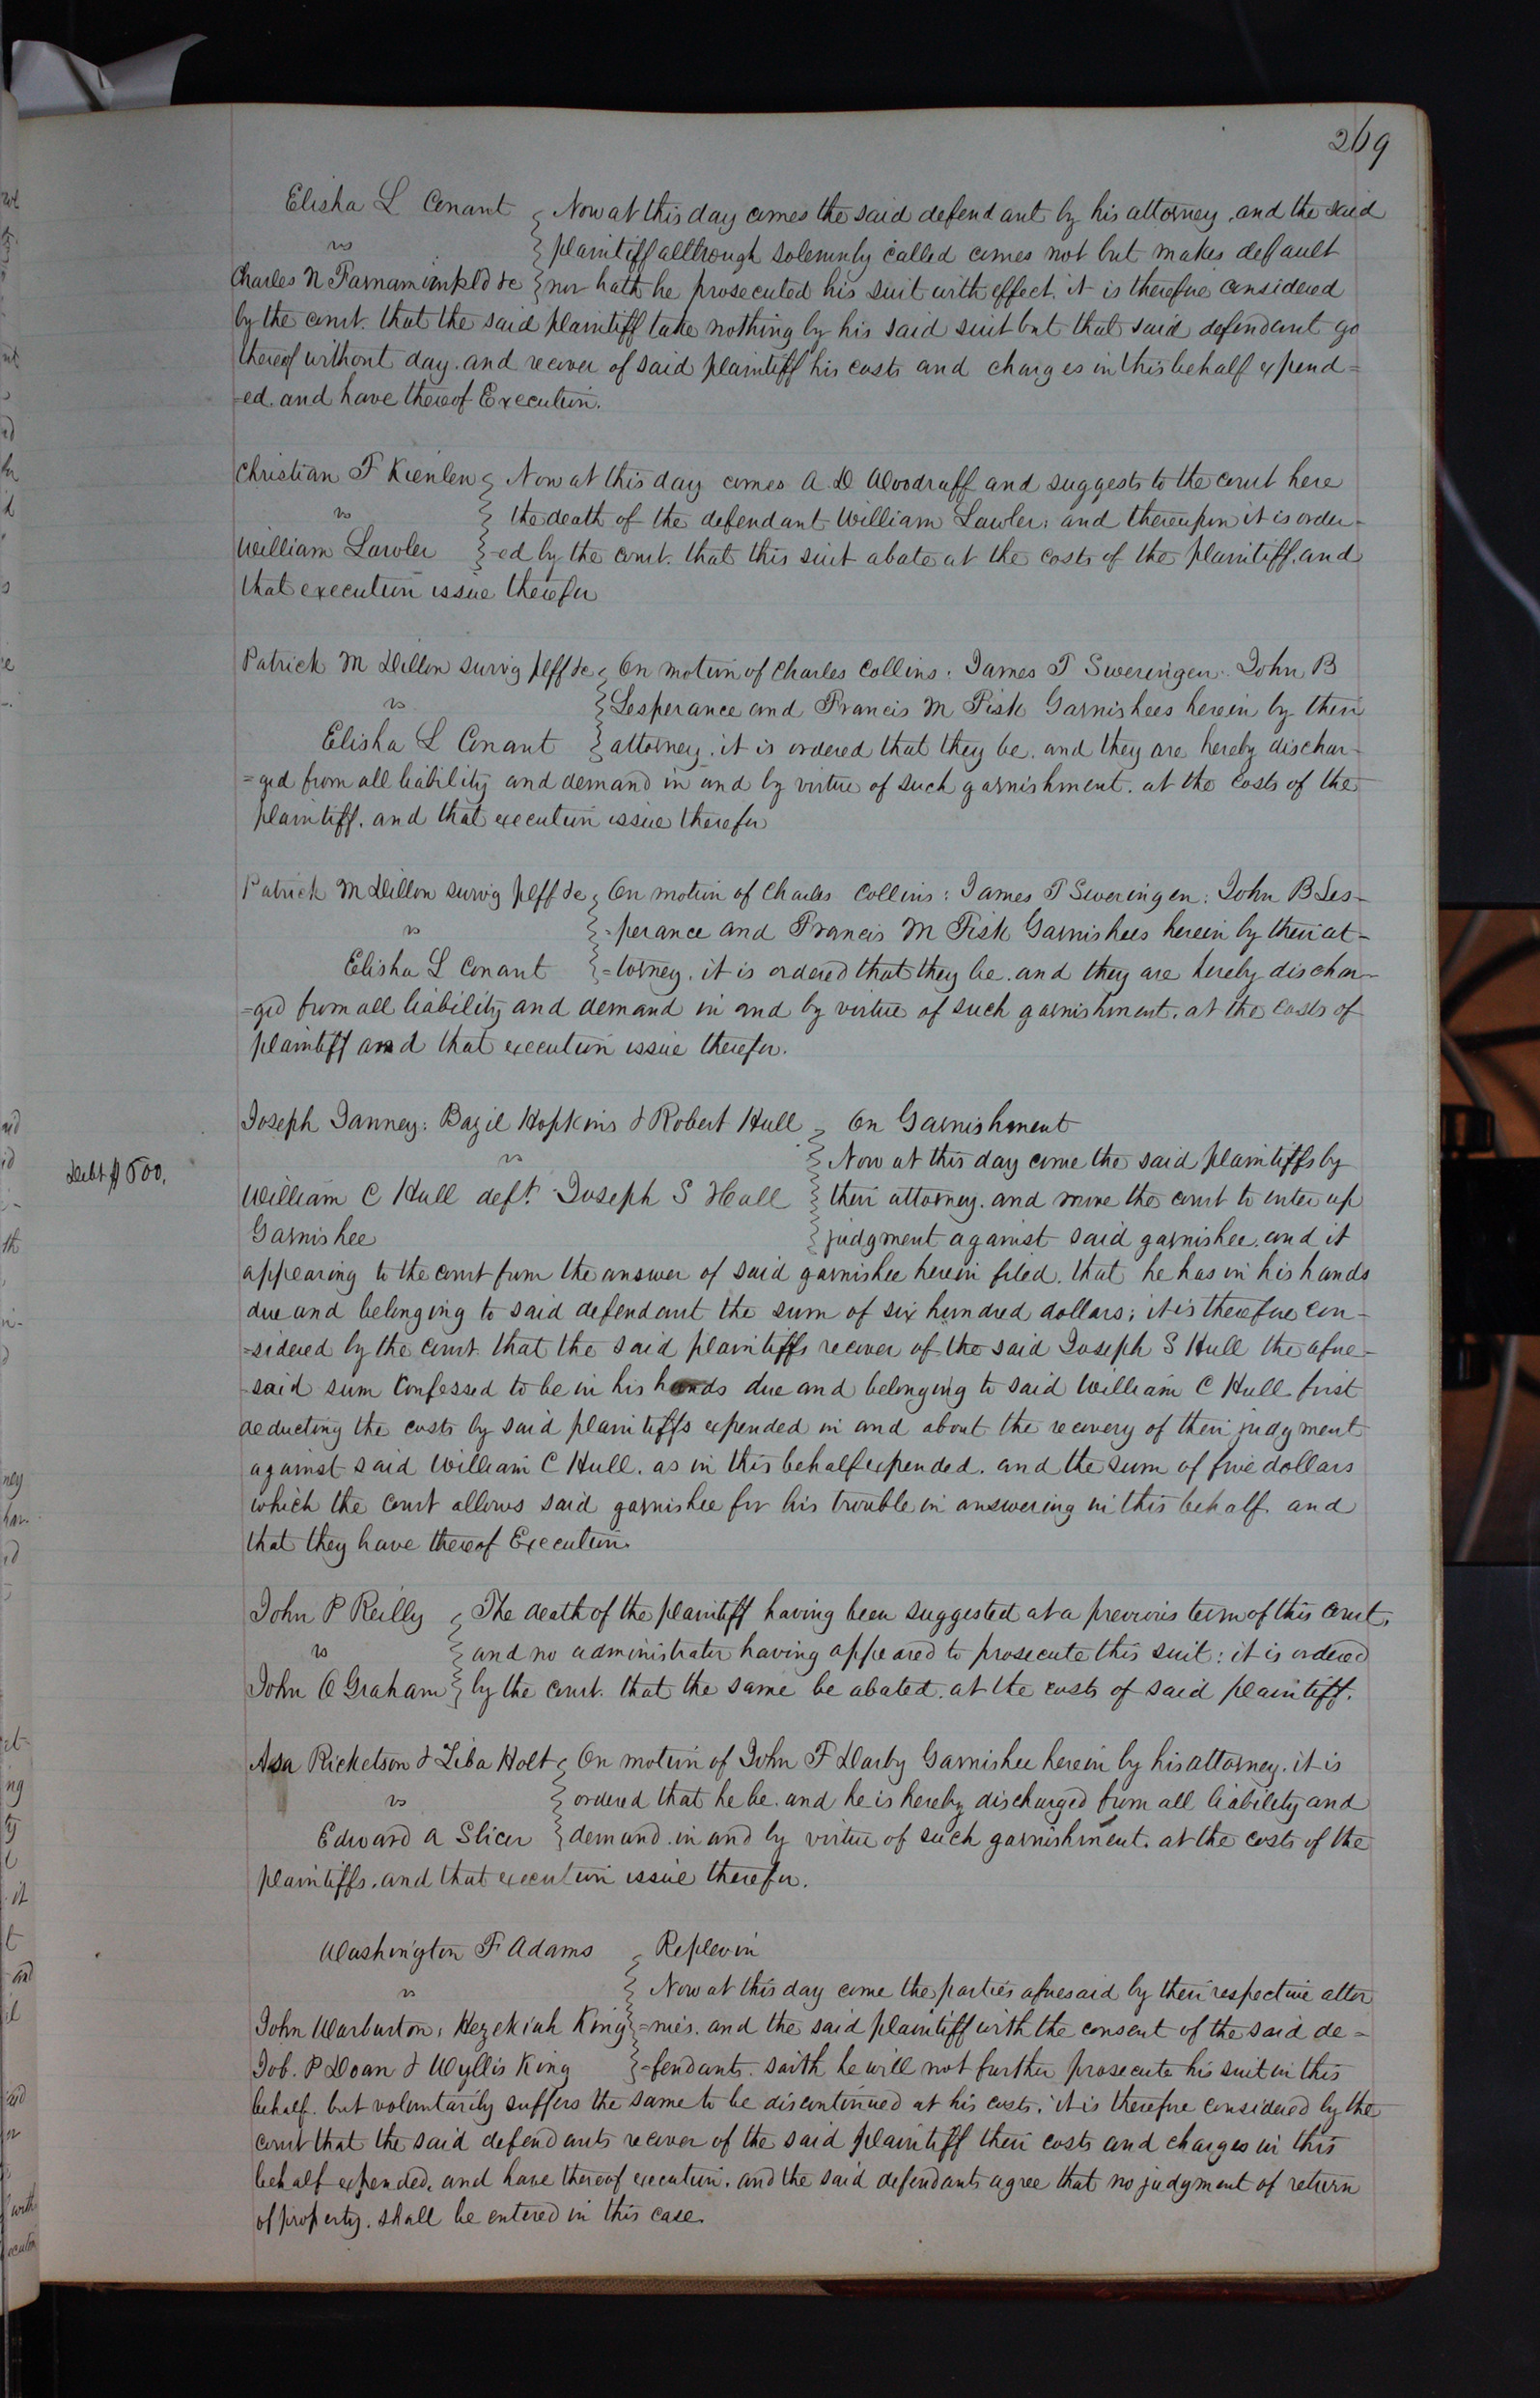 269
Elisha L Conant Now at this day comes the said defendant by his attorney, and the said
vs plaintiff allthrough solemnly called comes not but makes default
Charles N Farnam impld &c nor hath he prosecuted his suit with effect. it is therefore considered
by the court. that the said plaintiff take nothing by his said suit but that said defendant go
thereof without day. and recover of said plaintiff his costs and charges in this behalf expend=
=ed. and have thereof Execution.
Christian F Kienlen Now at this day comes A. D Woodruff and suggests to the court here
vs the death of the defendant William Lawler: and thereupon it is order-
William Lawler -ed by the court. that this suit abate at the costs of the plaintiff. and
that execution issue therefor
Patrick M Dillon survig plff &c On motion of Charles Collins: James T Sweringen: John B
vs Lesperance and Francis M Fisk Garnishees herein by their
Elisha L Conant attorney. it is ordered that they be. and they are hereby dischar-
=ged from all liability and demand in and by virtue of such garnishment. at the costs of the
plaintiff. and that execution issue therefor
Patrick M Dillon survig plff &c On motion of Charles Collins: James T Sweringen: John B Les-
vs =perance and Francis M Fisk Garnishees herein by their at-
Elisha L Conant =torney. it is ordered that they be. and they are hereby dischar-
=ged from all liability and demand in and by virtue of such garnishment. at the costs of
plaintiff and that execution issue therefor.
Joseph Janney: Bazil Hopkins & Robert Hull On Garnishment
vs Now at this day come the said plaintiffs by
Debt $500.
William C Hull deft. Joseph S Hull their attorney. and move the court to enter up
Garnishee judgment against said garnishee. and it
appearing to the court from the answer of said garnishee herein filed. that he has in his hands
due and belonging to said defendant the sum of six hundred dollars; it is therefore con-
=sidered by the court. that the said plaintiffs recover of the said Joseph S Hull the afore-
-said sum confessed to be in his hands due and belonging to said William C Hull first
deducting the costs by said plaintiffs expended in and about the recovery of their judgment
against said William C Hull. as in this behalf expended. and the sum of five dollars
which the court allows said garnishee for his trouble in answering in this behalf. and
that they have thereof Execution.
John P Reilly The death of the plaintiff having been suggested at a previous term of this court.
vs and no administrator having appeared to prosecute this suit: it is ordered
John O Graham by the court. that the same be abated. at the costs of said plaintiff.
Asa Ricketson & Ziba Holt On motion of John F Darby Garnishee herein by his attorney. it is
vs ordered that he be. and he is hereby discharged from all liability and
Edward A Slicer demand. in and by virtue of such garnishment. at the costs of the
plaintiffs. and that execution issue therefor.
Washington F Adams Replevin
vs Now at this day come the parties aforesaid by their respective attor
John Warburton, Hezekiah King =nies. and the said plaintiff with the consent of the said de=
Job. P Doan & Wyllis King =fendants. saith he will not further prosecute his suit in this
behalf. but voluntarily suffers the same to be discontinued at his costs. it is therefore considered by the
court that the said defendants recover of the said plaintiff their costs and charges in this
behalf expended. and have thereof execution. and the said defendants agree that no judgment of return
of property. shall be entered in this case.